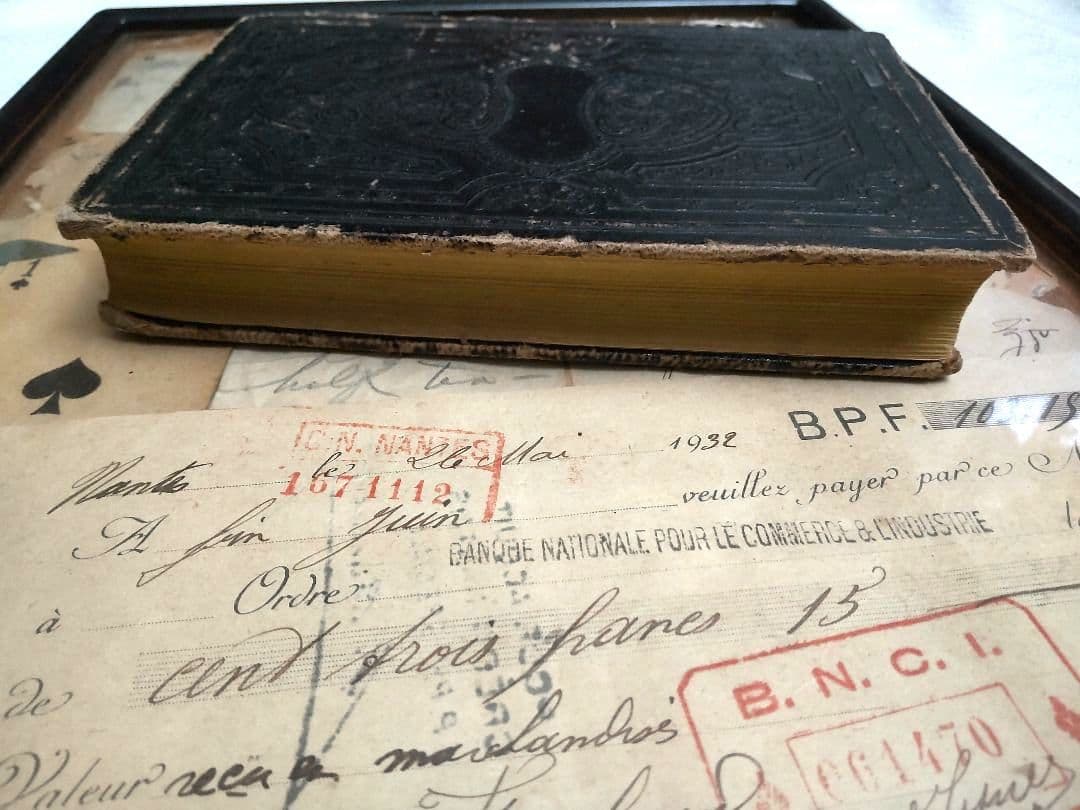 1
half tea -
B.N. NANTES
1671112
Nantes le 26 Mai 1932 B.P.F. 103,15
A fin Juin veuillez payer par ce
BANQUE NATIONALE POUR LE COMMERCE & L'INDUSTRIE
à Ordre
de cent trois francs 15
B. N. C. I.
061470
Valeur reçue en marchandises